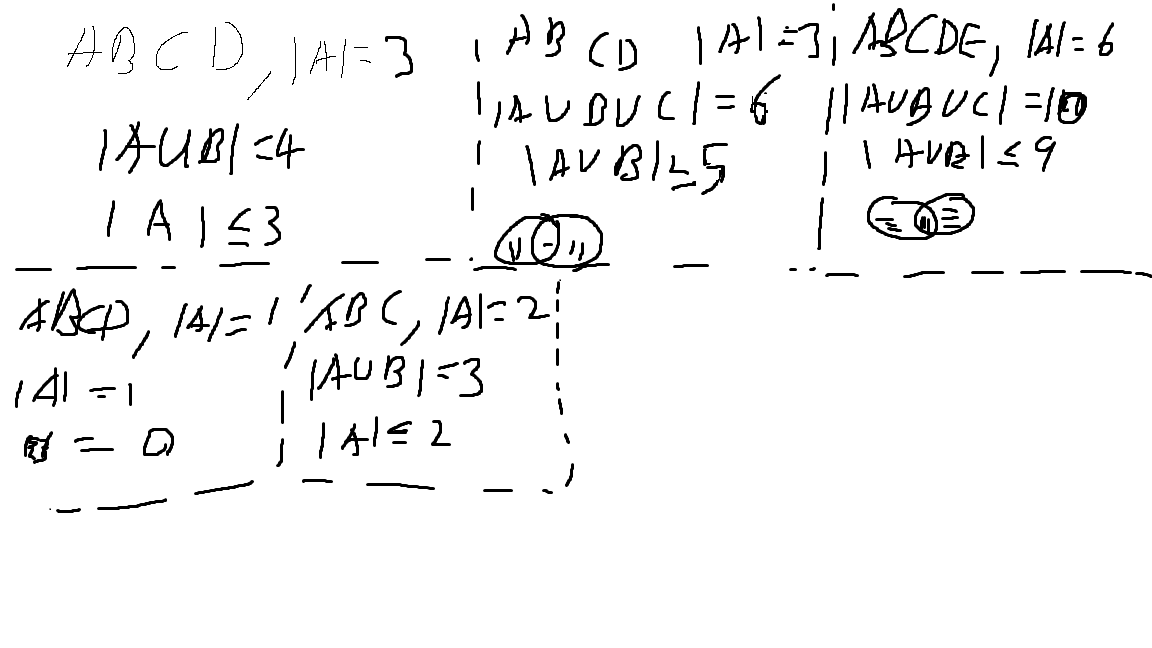 ABCD, |A|=3
|AUB|=4
|A|≤3
ABCD |A|=3
|AUBUC|=6
|AUB|≤5
ABCDE, |A|=6
|AUBUC|=10
|AUB|≤9
ABCD, |A|=1
|A|=1
= 0
ABC, |A|=2
|AUB|=3
|A|≤2